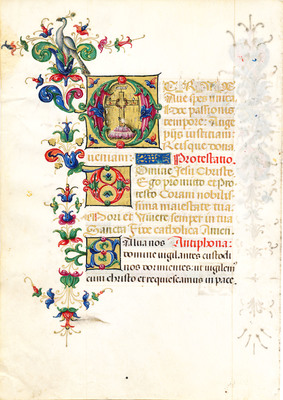 O CRUX
Aue spes unica
passionis
tempore: Auge
pijs iustitiam:
Reisque dona
ueniam: Protestatio.
Domine Jesu Christe
Ego et Pro
testo Coram nobilissi
ma maiestate tua
Mori et Viuere semper in tua
Sancta Fide catholica Amen.
Salua nos Antiphona:
domine uigilantes custodi
nos dormientes: ut uigilem
cum christo et requiescamus in pace.